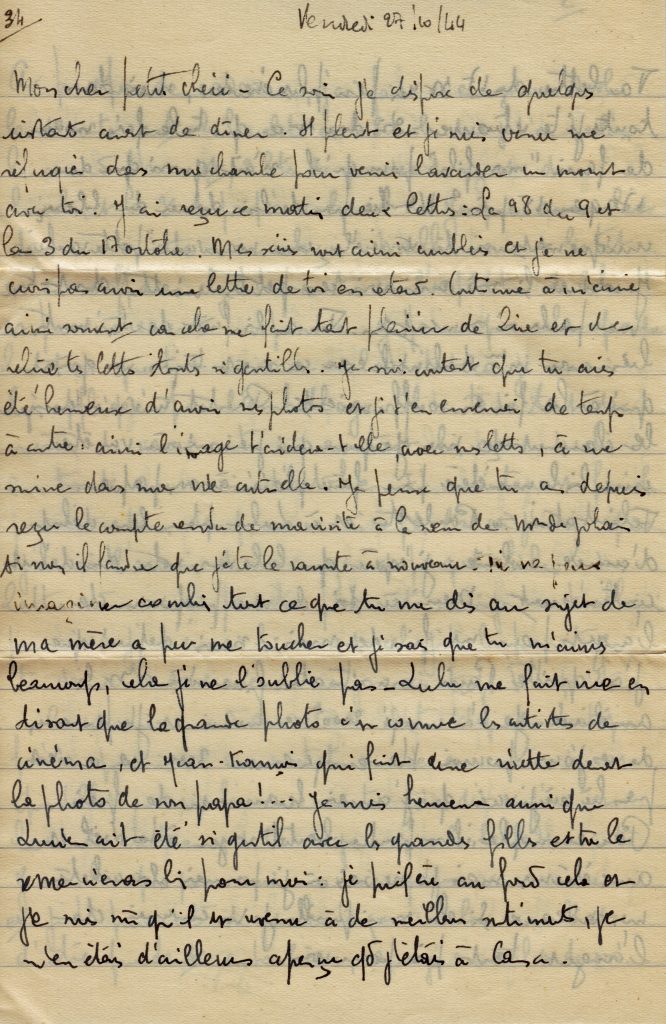 34
Vendredi 27/10/44
Mon cher petit chéri - Ce soir je dispose de quelques
instants avant de dîner. Il pleut et je suis venu me
réfugier dans ma chambre pour venir bavarder un moment
avec toi. J'ai reçu ce matin deux lettres : La 98 du 9 et
la 3 du 17 octobre. Mes séries sont ainsi et je ne
crois pas avoir une lettre de toi en retard. Continue à m'écrire
ainsi souvent car cela me fait tant plaisir de lire et de
relire tes lettres toutes si gentilles. Je suis content que tu aies
été heureux d'avoir ces photos et je t'en enverrai de temps
à autre : ainsi l'image t'aidera-t-elle, avec mes lettres, à me
suivre dans ma vie actuelle. Je pense que tu as depuis
reçu le compte rendu de ma visite à la sœur de
si non il faudra que je te le raconte à nouveau.
imaginer combien tout ce que tu me dis au sujet de
ma mère a pu me toucher et je sais que tu m'aimes
beaucoup, cela je ne l'oublie pas - Lulu me fait rire en
disant que la grande photo c'est comme les artistes de
cinéma, et Jean-François qui fait une risette devant
la photo de son papa !... Je suis heureux aussi que
Lucien ait été si gentil avec les grandes filles et tu le
remercieras bien pour moi : je préfère au fond cela et
je suis sûr qu'il est revenu à de meilleurs sentiments, je
m'en étais d'ailleurs aperçu qd j'étais à Casa.